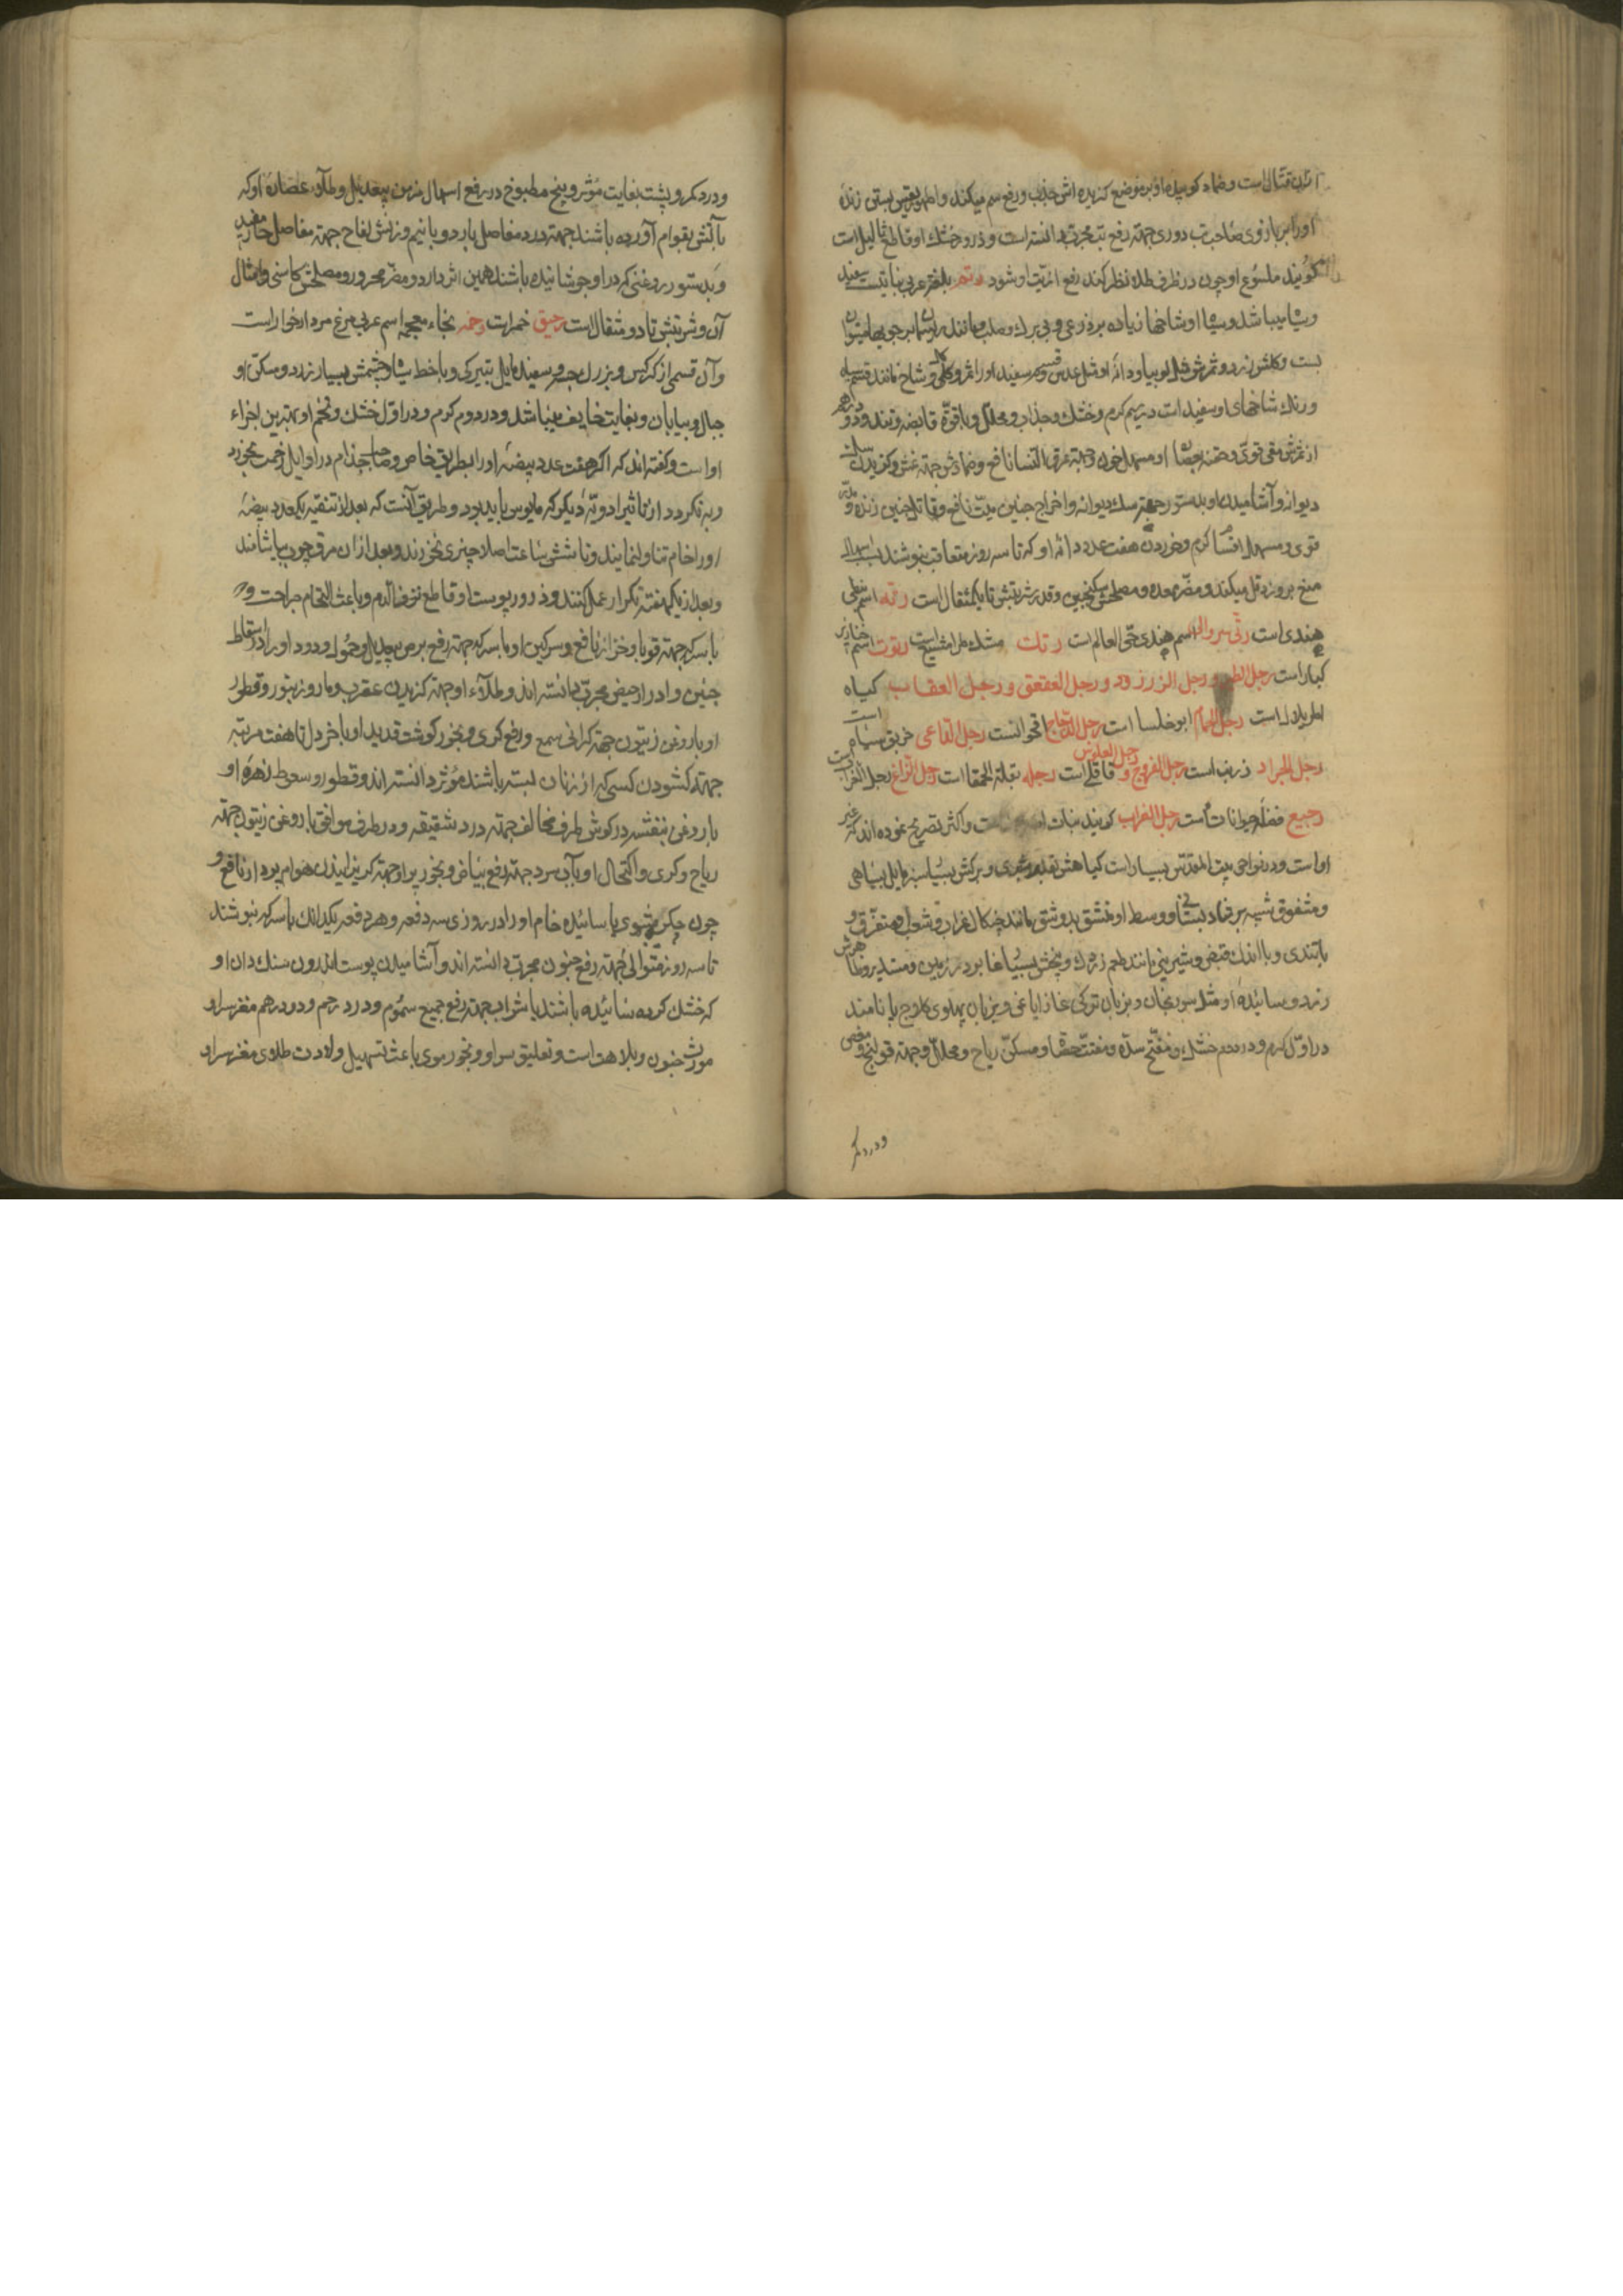 اثر آن قتال است و ضماد کوبیدهٔ او بر موضع گزیده اش جذب و رفع سم میکند و بستن زندهٔ
او را بر بازوی صاحب تب دوری جهته رفع تب مجرب دانسته است و ذرور خشک او قاطع ثالیل است
گویند ملسوع او چون در ظرف طلا نظر کند رفع اذیت او شود رتم بلغتر عربی نباتیست سفید
و شاخها زیاده بر ذرعی و بی برك و صلب و مانند ریسمان بر چوبها میتوان
بست و کلش زرد و ثمرش مثل لوبیا و دانه او مثل عدس و قسم سفید او را ثمر و شاخ مانند قسم سیاه
و رنك شاخهای او سفید است در سیم کرم و خشك و جذاب و محلل و با قوة قابضه و تند و دو درهم
از ثمرش مقی قوی و حقنه بعصارهٔ او مسهل خون و جهته عرق النسا نافع و ضمادش جهته غش و کزیدن سك
دیوانه و آشامیدن او بدستور جهته سك دیوانه و اخراج جنین میت نافع و قاتل جنین زنده و مدر
قوی و مسهل اقسام کرم و خوردن هفت عدد دانهٔ او که تا سه روز متعاقب بنوشند
منع بروز دمل میکند و مضر معده و مصلحش سکنجبین و قدر شربتش تا یکمثقال است رته اسم نبطی
هندی است اسم هندی حی العالم است رتت مشك طرامشیع است رتوت اسم خنازیر
کبار است رجل الطیر و رجل الزرزور و رجل العقعق و رجل العقاب گیاه
اطریلال است رجل الحمام ابوخلسا است رجل الدجاج اقحوانست رجل الفاعی خربق سیاه است
رجل الجراد زرنب است رجل الفروج و رجل الفلوس قاقلی است رجله بقلة الحمقا است رجل الزاغ رجل الغراب است
رجیع فضله حیوانات است رجل الغراب گویند نبات است و اکثر تصریح نموده اند که غیر
او است و در نواحی بیت المقدس بسیار است کیاهش بقدر شبری و برکش بسیار سبز مایل بسیاهی
و مشقوق شبیه برشاد بستانی و وسط او منشق بدو شق مانند چنکال غراب و شعب او متفرق و
با تندی و با اندك قبض و شیرینی مانند طعم زردك و بیخش بسیار غایر در زمین و مستدیر و ظاهرش
زرد و سائیدهٔ او مثل سورنجان و بزبان ترکی غاز ایاغی و بزبان پهلوی کلاوج پایا نامند
در اول کرم و در دوم خشك و مفتح سده و مفتت حصا و مسکن ریاح و محلل و جهته قولنج و مغص
و درد کمر
و درد کمر و پشت بغایت مؤثر و بیخ مطبوخ در رفع اسهال مزمن بیعدیل و طلاء عصارهٔ او که
بآتش بقوام آورده باشند جهته درد مفاصل بارد و با نیم وزنش لفاح جهته مفاصل حار مفید
و بدستور روغنی که در او جوشانیده باشند همین اثر دارد و مضر محرور و مصلحش کاسنی و امثال
آن و شربتش تا دو مثقال است رحیق خمر است رخمه بخاء معجمه اسم عربی مرغ مردار خوار است
و آن قسمی از کرکس و بزرك جثه و سفید مایل بتیرکی و با خط سیاه و چشمش بسیار زرد و مسکن او
جبال و بیابان و بغایت خایف میباشد و در دوم کرم و در اول خشك و تخم او بهترین اجزاء
او است و کفته اند که اکر هفت عدد بیضهٔ او را بطریق خاص صاحب جذام در اوایل زحمت بخورد
و به نکردد از تاثیر ادویهٔ دیکر که مایوس باید بود و طریق آنست که بعد از تنقیه یکعدد بیضهٔ
او را خام تناول نمایند و تا شش ساعت اصلا چیزی نخورند و بعد از آن مرق چوب بیاشامند
و بعد از یکهفته تکرار عمل کنند و ذرور پوست او قاطع نزف الدم و باعث التحام جراحت و
با سرکه جهته قوبا و خزاز نافع و سرکین او با سرکه جهته رفع برص بیعدیل و حمول و دود او را در اسقاط
جنین و ادرار حیض مجرب دانسته اند و طلاء او جهته کزیدن عقرب و مار و زنبور و قطور
او با روغن زیتون جهته کرانی سمع و رفع کری و بخور کوشت قدید او با خردل تا هفت مرتبه
جهته کشودن کسی که از زنان بسته باشند مؤثر دانسته اند و قطور و سعوط زهرهٔ او
با روغن بنفشه در کوش طرف مخالف جهته درد شقیقه و در طرف موافق با روغن زیتون جهته
ریاح و کری و اکتحال او بآب سرد جهته رفع بیاض و بخور پر او جهته کریزانیدن هوام بد از نافع و
چون جکر مشوی یا سائیده خام او را در روزی سه دفعه و هر دفعه یکدانك با سرکه بنوشند
تا سه روز متوالی جهته رفع جنون مجرب دانسته اند و آشامیدن پوست اندرون سنك دان او
که خشك کرده سائیده باشند با شراب جهته رفع جمیع سموم و درد رحم و دو درهم مغز سر او
مورث جنون و بلاهت است و تعلیق سر او و بخور موی باعث تسهیل ولادت طلای مغز سر او